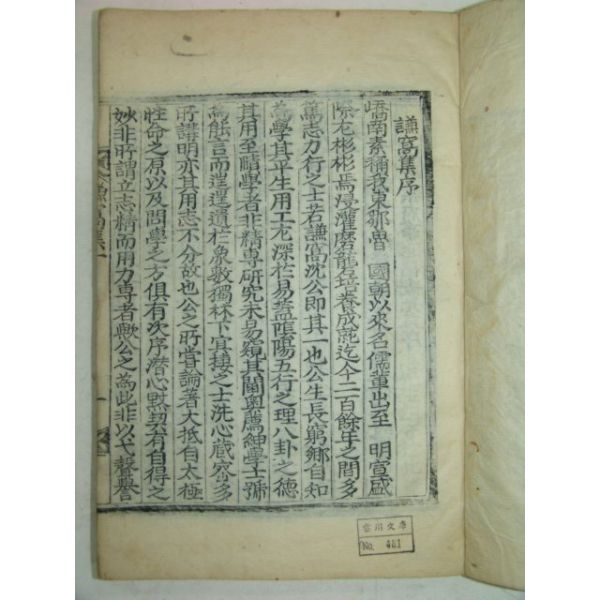 謙窩集序
嶠南素稱我東鄒魯 國朝以來名儒輩出至 明宣盛
際尤彬彬焉浸灌磨礱培養成就迄今二百餘年之間多
篤志力行之士若謙窩沈公即其一也公生長窮鄉自知
爲學其平生用工尤深於易蓋陰陽五行之理八卦之德
其用至賾學者非精專硏究未易窺其閫奧薦紳學士號
爲能言而遑遑遺於象數獨林下宜接之士洗心藏密多
所講明亦其用志不分故也公之所嘗論著大抵自太極
性命之原以及問學之方俱有次序潛心默契有自得之
妙非所謂立志精而用力專者歟公之爲此非以弋聲譽
謙窩集
一
雲川文庫
No. 481